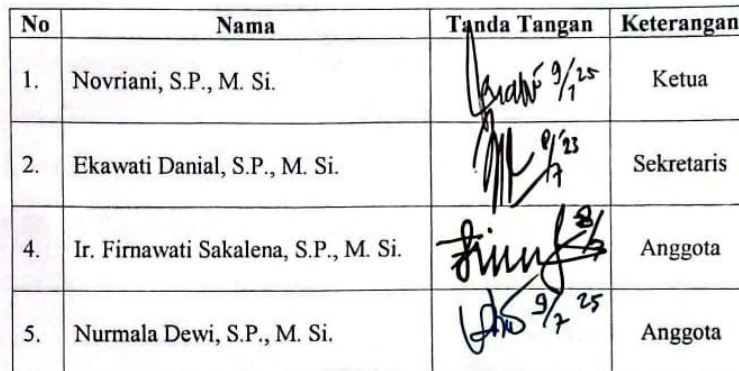 No Nama Tanda Tangan Keterangan
1. Novriani, S.P., M. Si. 9/7 25 Ketua
2. Ekawati Danial, S.P., M. Si. Sekretaris
4. Ir. Firnawati Sakalena, S.P., M. Si. Anggota
5. Nurmala Dewi, S.P., M. Si. 9/7 25 Anggota